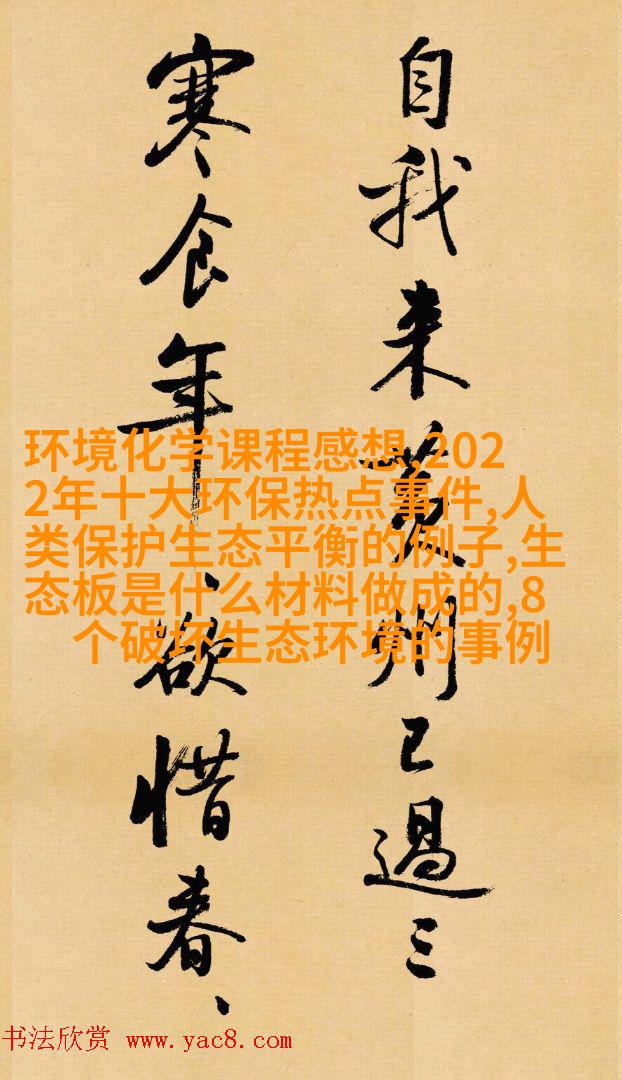 自我来黄州已過三
寒食年、欲惜春、
环境化学课程感想,202
2年十大环保热点事件,人
类保护生态平衡的例子,生
态板是什么材料做成的,8
个破坏生态环境的事例
书法欣赏 www.yac8.com